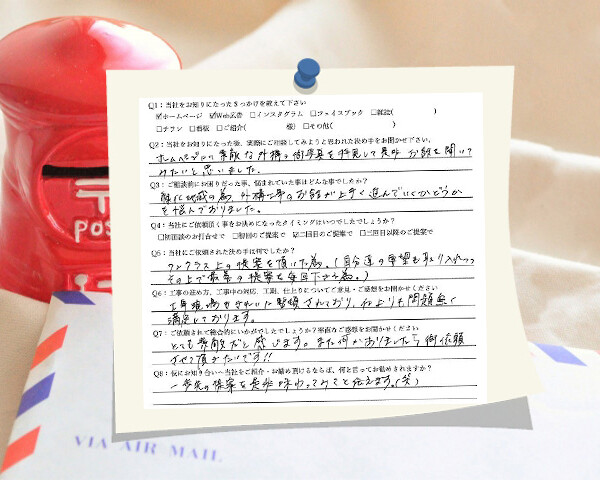 Q1：当社をお知りになったきっかけを教えて下さい
☑ホームページ ☑Web広告 □インスタグラム □フェイスブック □雑誌( )
□チラシ □看板 □ご紹介( 様) □その他( )
Q2：当社をお知りになった後、実際にご相談してみようと思われた決め手をお聞かせ下さい。
ホームページにて素敵な外構の御写真を拝見して是非お話を聞いて
みたいと思いました。
Q3：ご相談前にお困りだった事、悩まれていた事はどんな事でしたか？
外構工事のお話が上手く進んでいくかどうか
を悩んでおりました。
Q4：当社にご依頼頂く事をお決めになったタイミングはいつでしたでしょうか？
□初回面談のお打合せで □初回のご提案で ☑二回目のご提案で □三回目以降のご提案で
Q5：当社にご依頼された決め手は何でしたか？
ワンクラス上の提案を頂いた為。(自分達の希望も取り入れつつ
その上で最善の提案を毎回下さる為。)
Q6：工事の進め方、工事中の対応、工期、仕上りについてご意見・ご感想をお聞かせください
工事現場もきれいに整頓されており、仕上りも問題無く
満足しております。
Q7：ご依頼されて総合的にいかがでしたでしょうか？率直なご感想をお聞かせください
とても素敵だと感じます。また何かありましたら御依頼
させて頂きたいです!!
Q8：仮にお知り合いへ当社をご紹介・お勧め頂けるならば、何と言ってお勧めされますか？
一歩先の提案を是非味わってみてと伝えます。(笑)
POS
VIA AIR MAIL